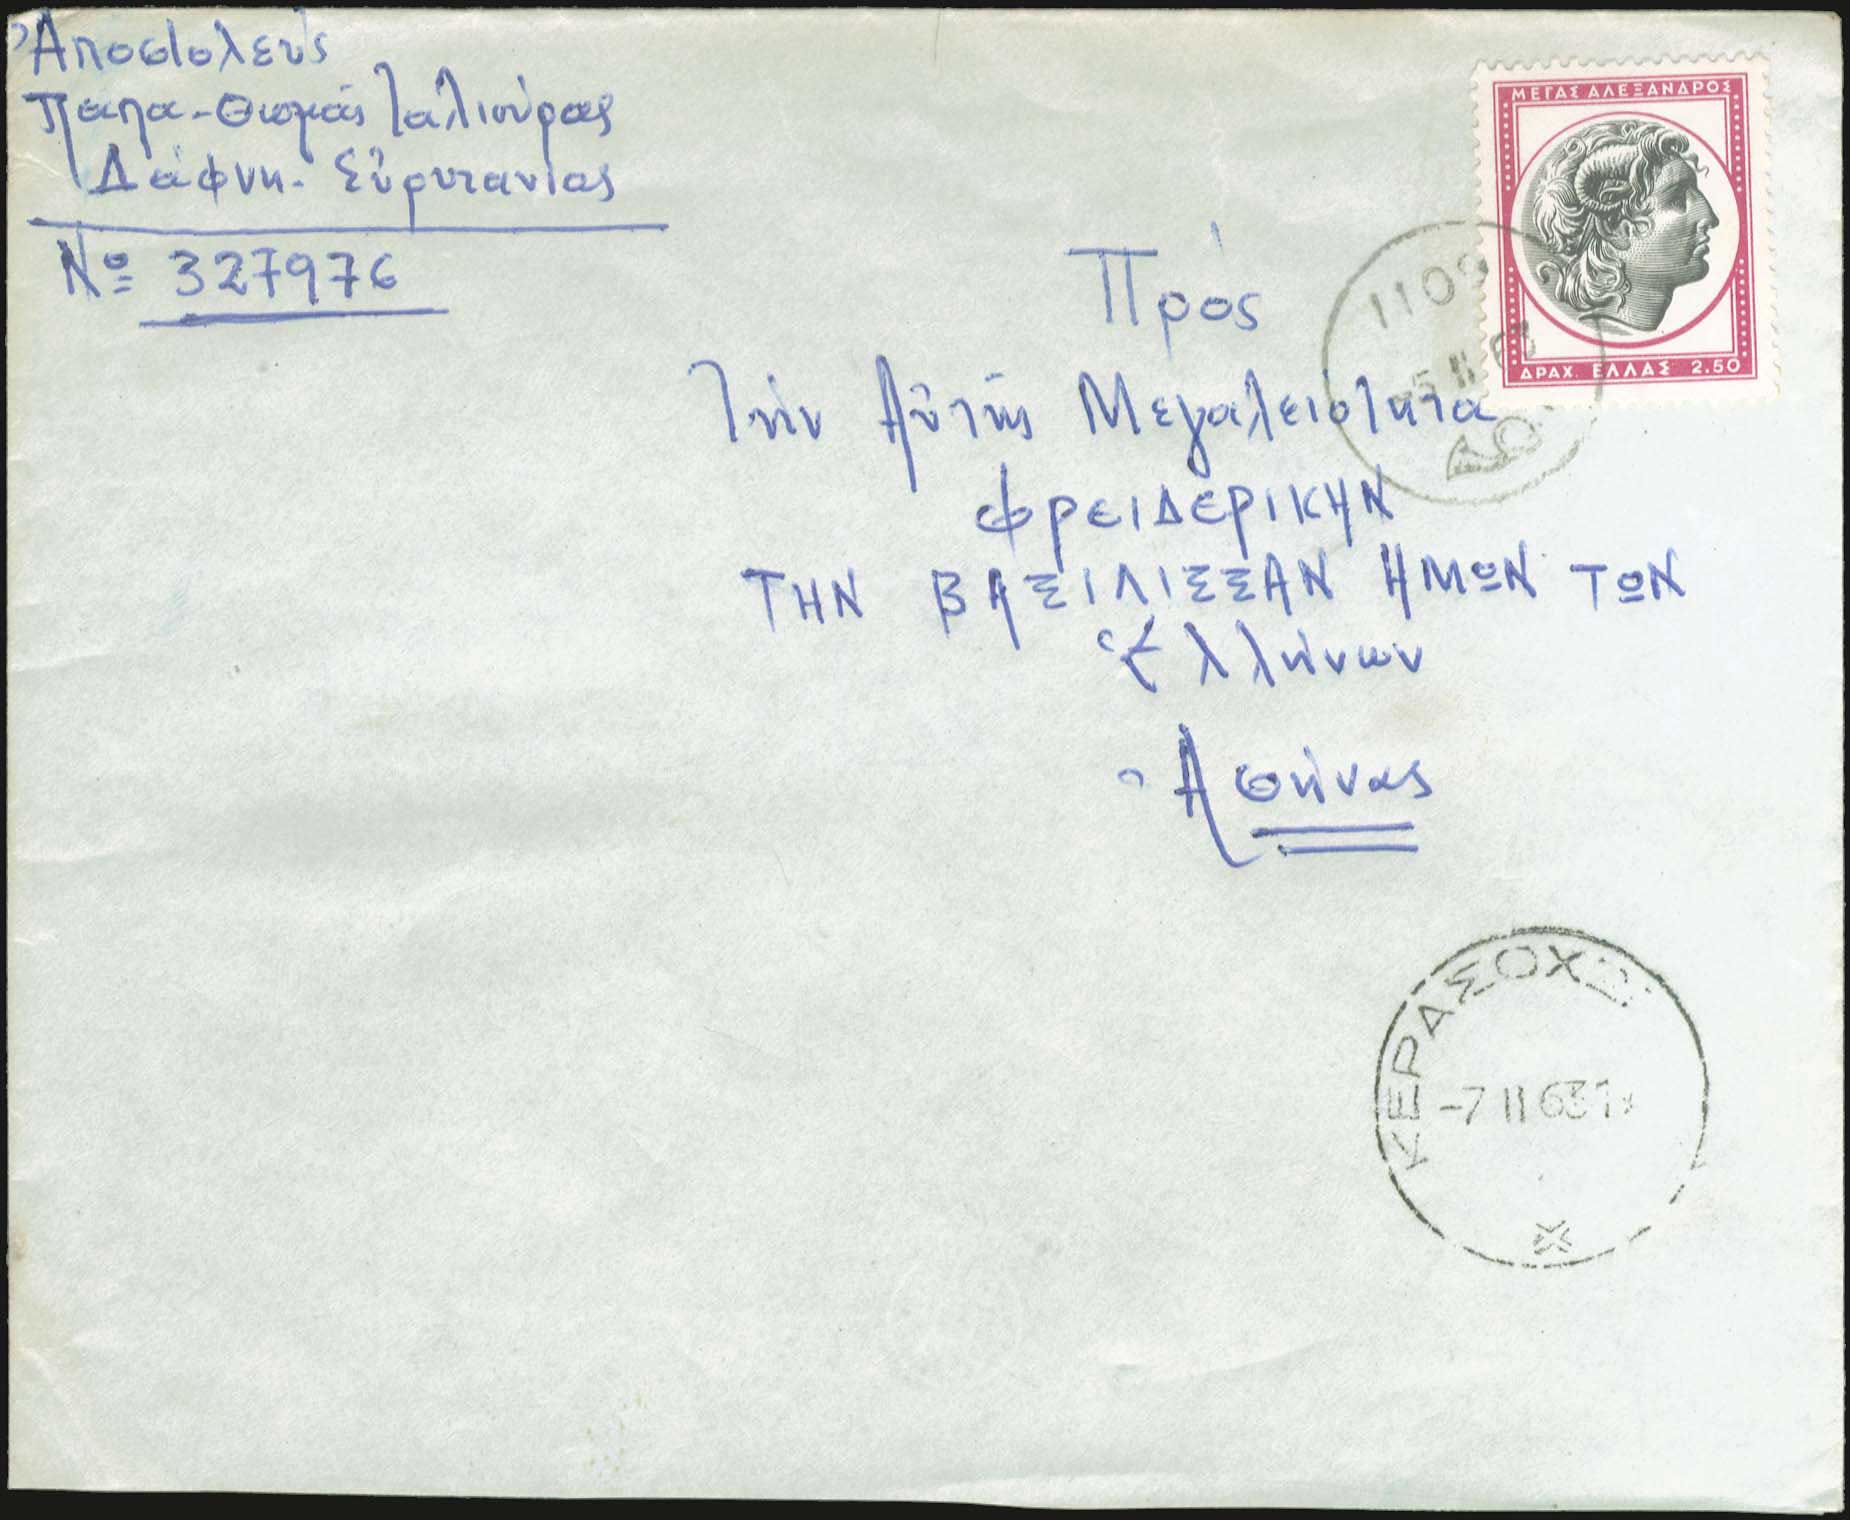 Ἀποστολεύς
Παπα-Θωμᾶς Τσλιούρας
Δάφνη-Εὐρυτανίας
Nº 327976
ΜΕΓΑΣ ΑΛΕΞΑΝΔΡΟΣ
ΔΡΑΧ. ΕΛΛΑΣ 2.50
1109
5 II 63
Πρός
Τήν Αὐτῆς Μεγαλειότητα
ΦΡΕΙΔΕΡΙΚΗΝ
ΤΗΝ ΒΑΣΙΛΙΣΣΑΝ ΗΜΩΝ ΤΩΝ
Ἑλλήνων
Ἀθήνας
ΚΕΡΑΣΟΧΩ
-7 II 63